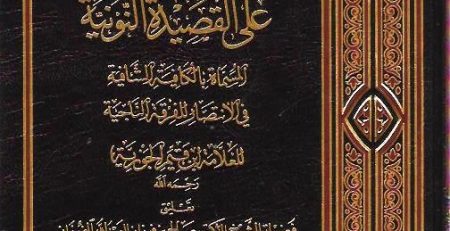 على القصيدة النونية
المسماة بالكافية الشافية
في الانتصار للفرقة الناجية
للعلامة ابن قيم الجوزية
رحمه الله
تعليق